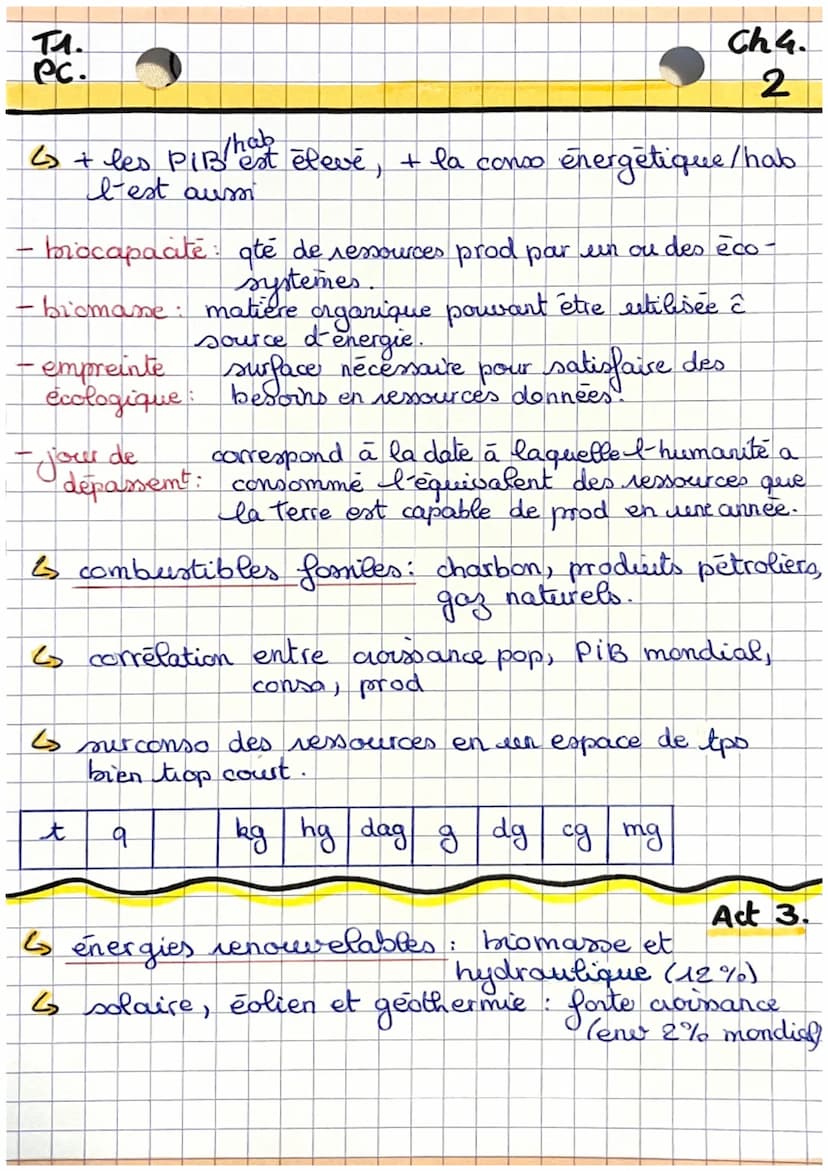 T1.
PC.
Ch 4.
2
↳ + les PIB/hab est élevé, + la conso énergétique/hab
l'est aussi
- biocapacité : qté de ressources prod par un ou des éco-
systemes.
- biomasse : matière organique pouvant être utilisée ĉ
source d'énergie.
- empreinte surface nécessaire pour satisfaire des
écologique : besoins en ressources données.
- jour de correspond à la date à laquelle l'humanité a
dépassemt : consommé l'équivalent des ressources que
la Terre est capable de prod en une année.
↳ combustibles fossiles : charbon, produits pétroliers,
gaz naturels.
↳ corrélation entre croissance pop, PIB mondial,
conso, prod
↳ surconso des ressources en un espace de tps
bien trop court.
t q kg hg dag g dg cg mg
Act 3.
↳ énergies renouvelables : biomasse et
hydraulique (12%)
↳ solaire, éolien et géothermie : forte croissance
2% mondial